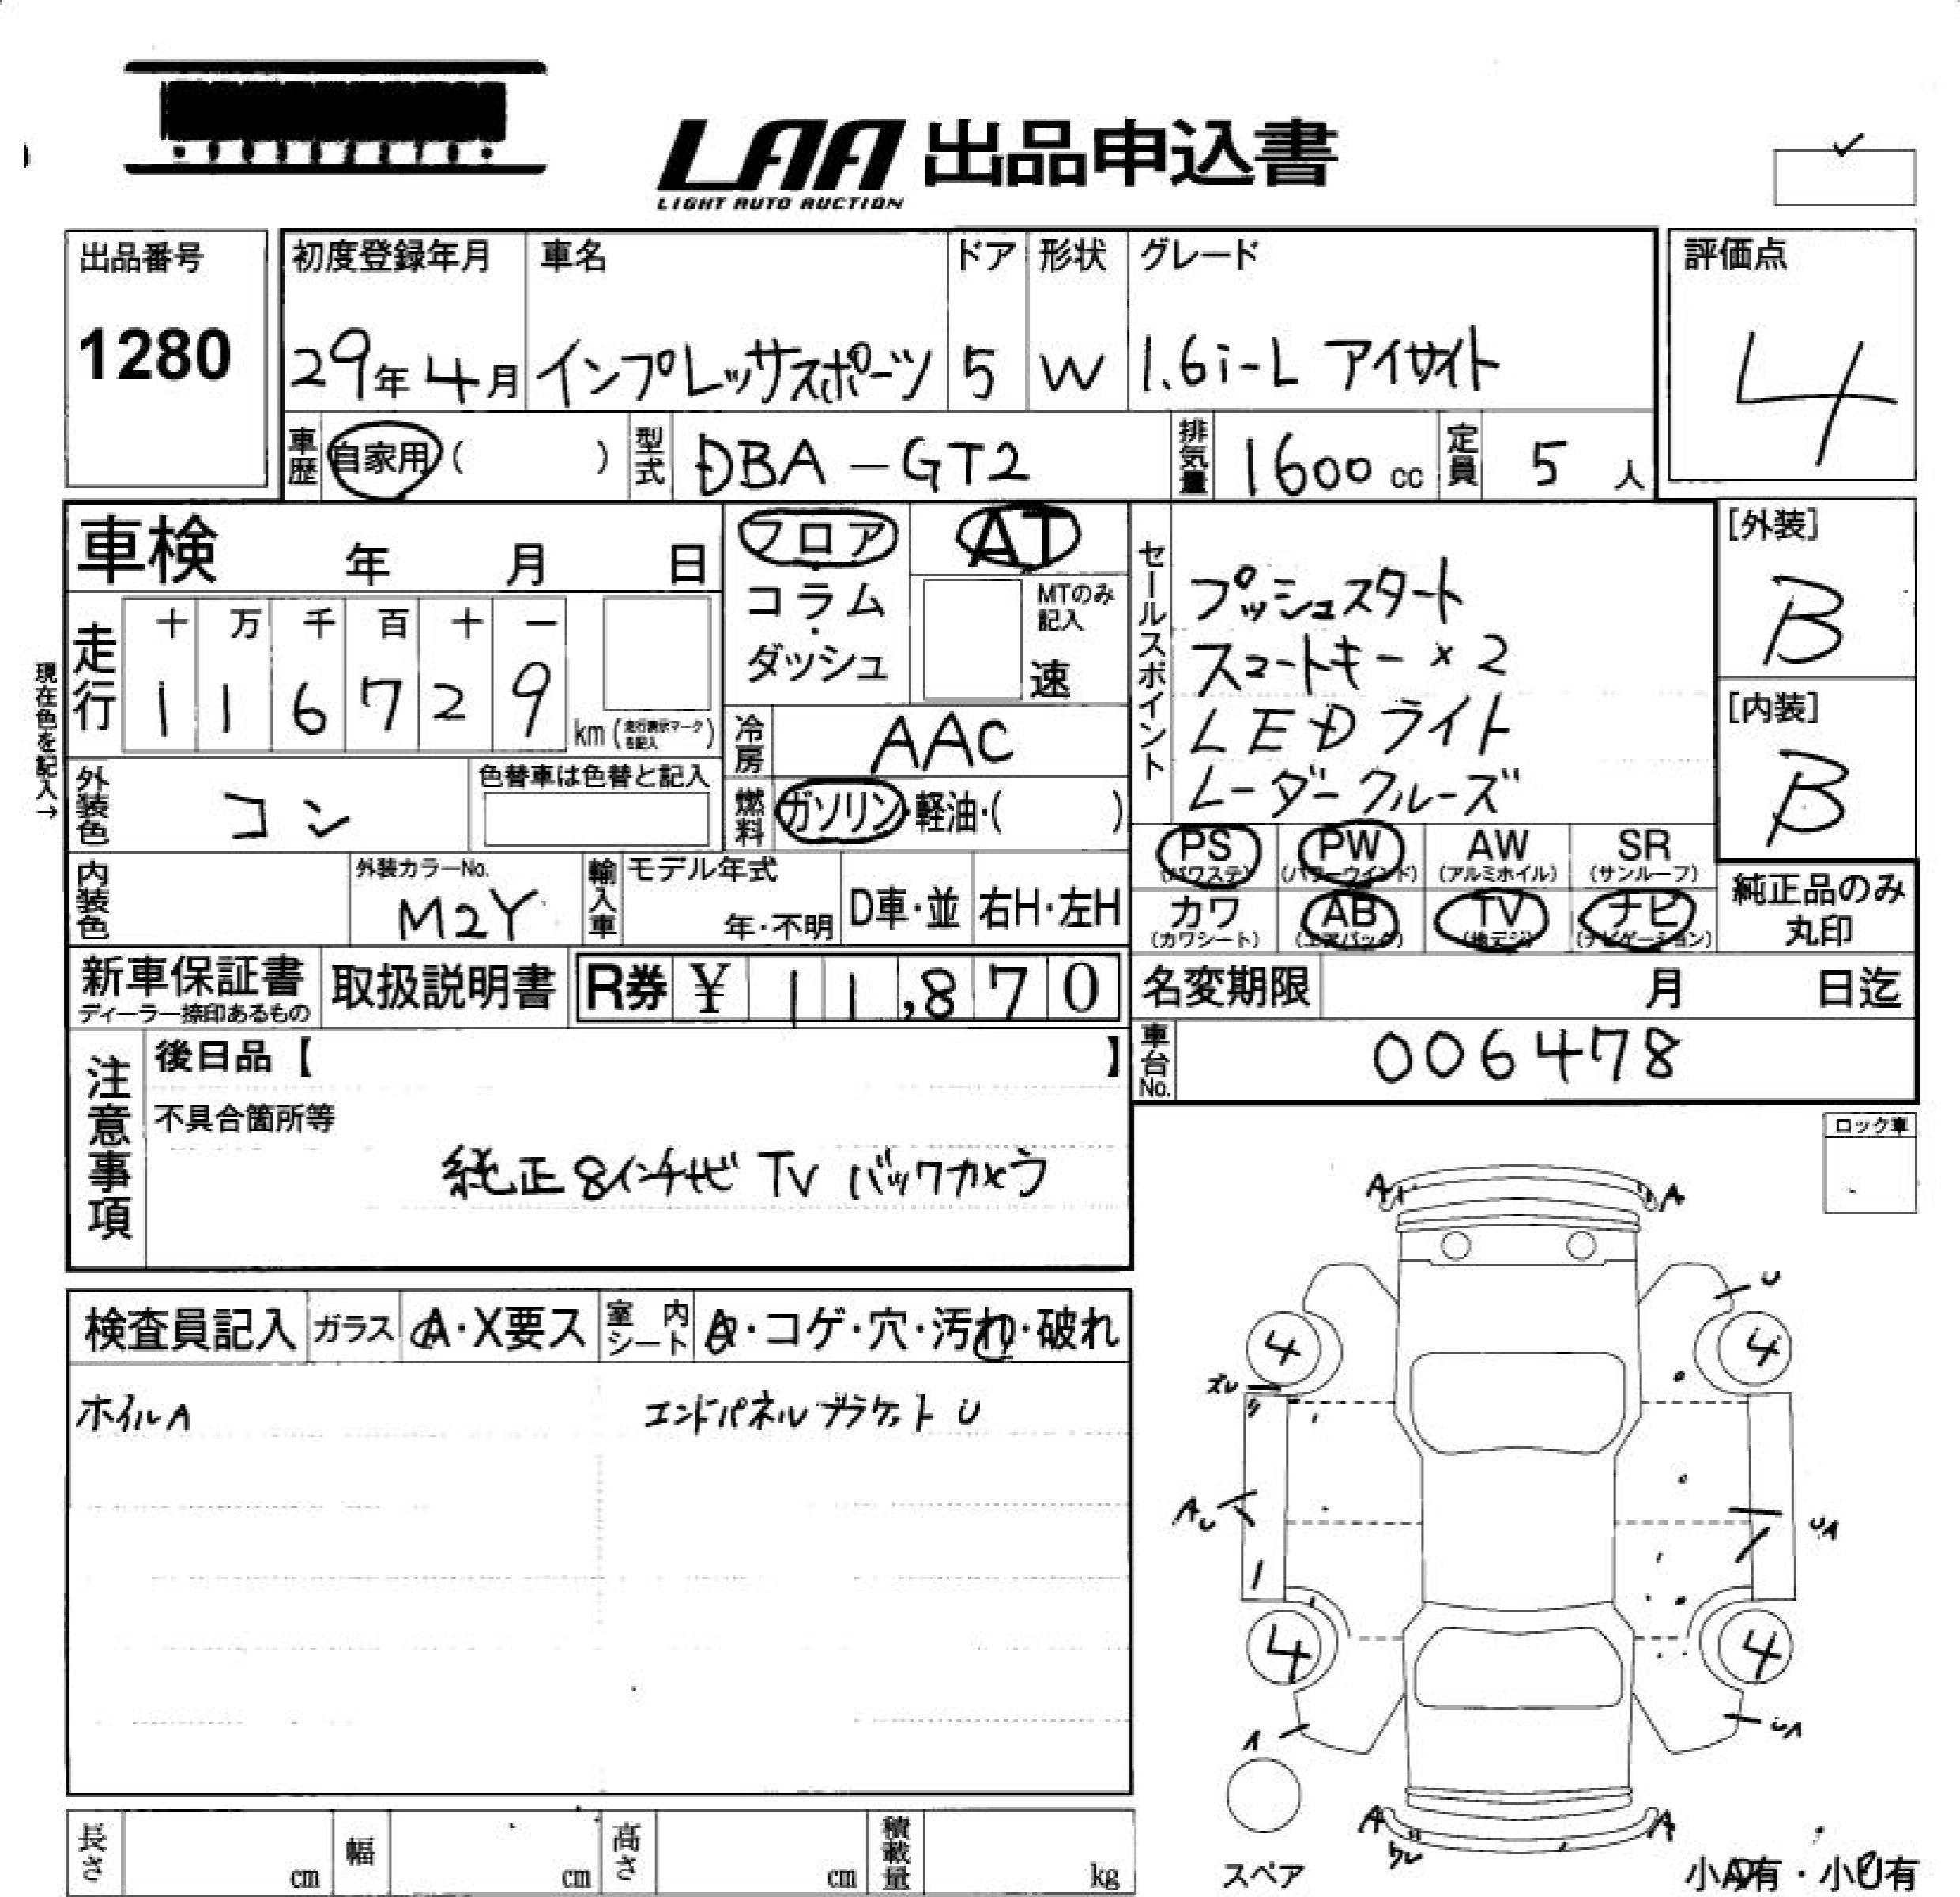 LAA 出品申込書
LIGHT AUTO AUCTION
出品番号
1280
初度登録年月
29年4月
車名
インプレッサスポーツ
ドア
5
形状
W
グレード
1.6i-L アイサイト
評価点
4
車歴
自家用 ( )
型式
DBA-GT2
排気量
1600 cc
定員
5 人
車検 年 月 日
フロア
・
コラム
・
ダッシュ
AT
MTのみ記入
速
セールスポイント
プッシュスタート
スマートキー×2
LEDライト
レーダークルーズ
[外装]
B
[内装]
B
現在色を記入→
走行
十 万 千 百 十 一
1 1 6 7 2 9
km (走行表示マークを記入)
冷房
AAC
燃料
ガソリン・軽油・( )
外装色
コン
色替車は色替と記入
内装色
外装カラーNo.
M2Y
輸入車
モデル年式
年・不明
D車・並
右H・左H
PS
(パワステ)
PW
(パワーウインド)
AW
(アルミホイル)
SR
(サンルーフ)
カワ
(カワシート)
AB
(エアバック)
TV
(地デジ)
ナビ
(ナビゲーション)
純正品のみ
丸印
新車保証書
ディーラー捺印あるもの
取扱説明書
R券 ¥ 11,870
名変期限 月 日迄
車台No.
006478
注意事項
後日品【 】
不具合箇所等
純正8インチナビ TV バックカメラ
ロック車
検査員記入
ガラス
A・X要ス
室内シート
A・コゲ・穴・汚れ・破れ
ホイルA
エンドパネルブラケットU
A
A
U
4
4
ズレ
AU
UA
4
4
A
UA
A
A
ワレ
スペア
小A有・小U有
長さ cm
幅 cm
高さ cm
積載量 kg